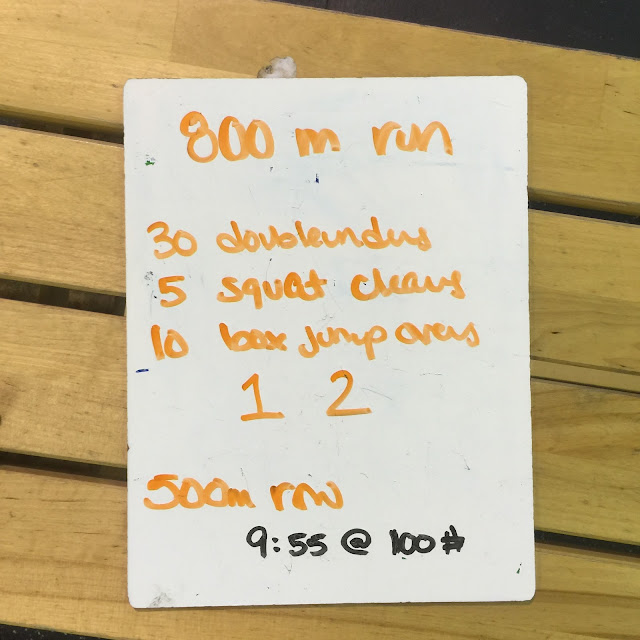 800 m run
30 doubleunders
5 squat cleans
10 box jump overs
1 2
500m row
9:55 @ 100#